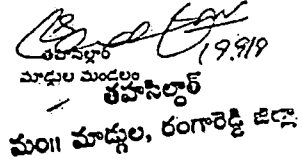 19.9.19
తహసిల్దార్
మాడ్గుల మండలం
తహసిల్దార్
మం॥ మాడ్గుల, రంగారెడ్డి జిల్లా